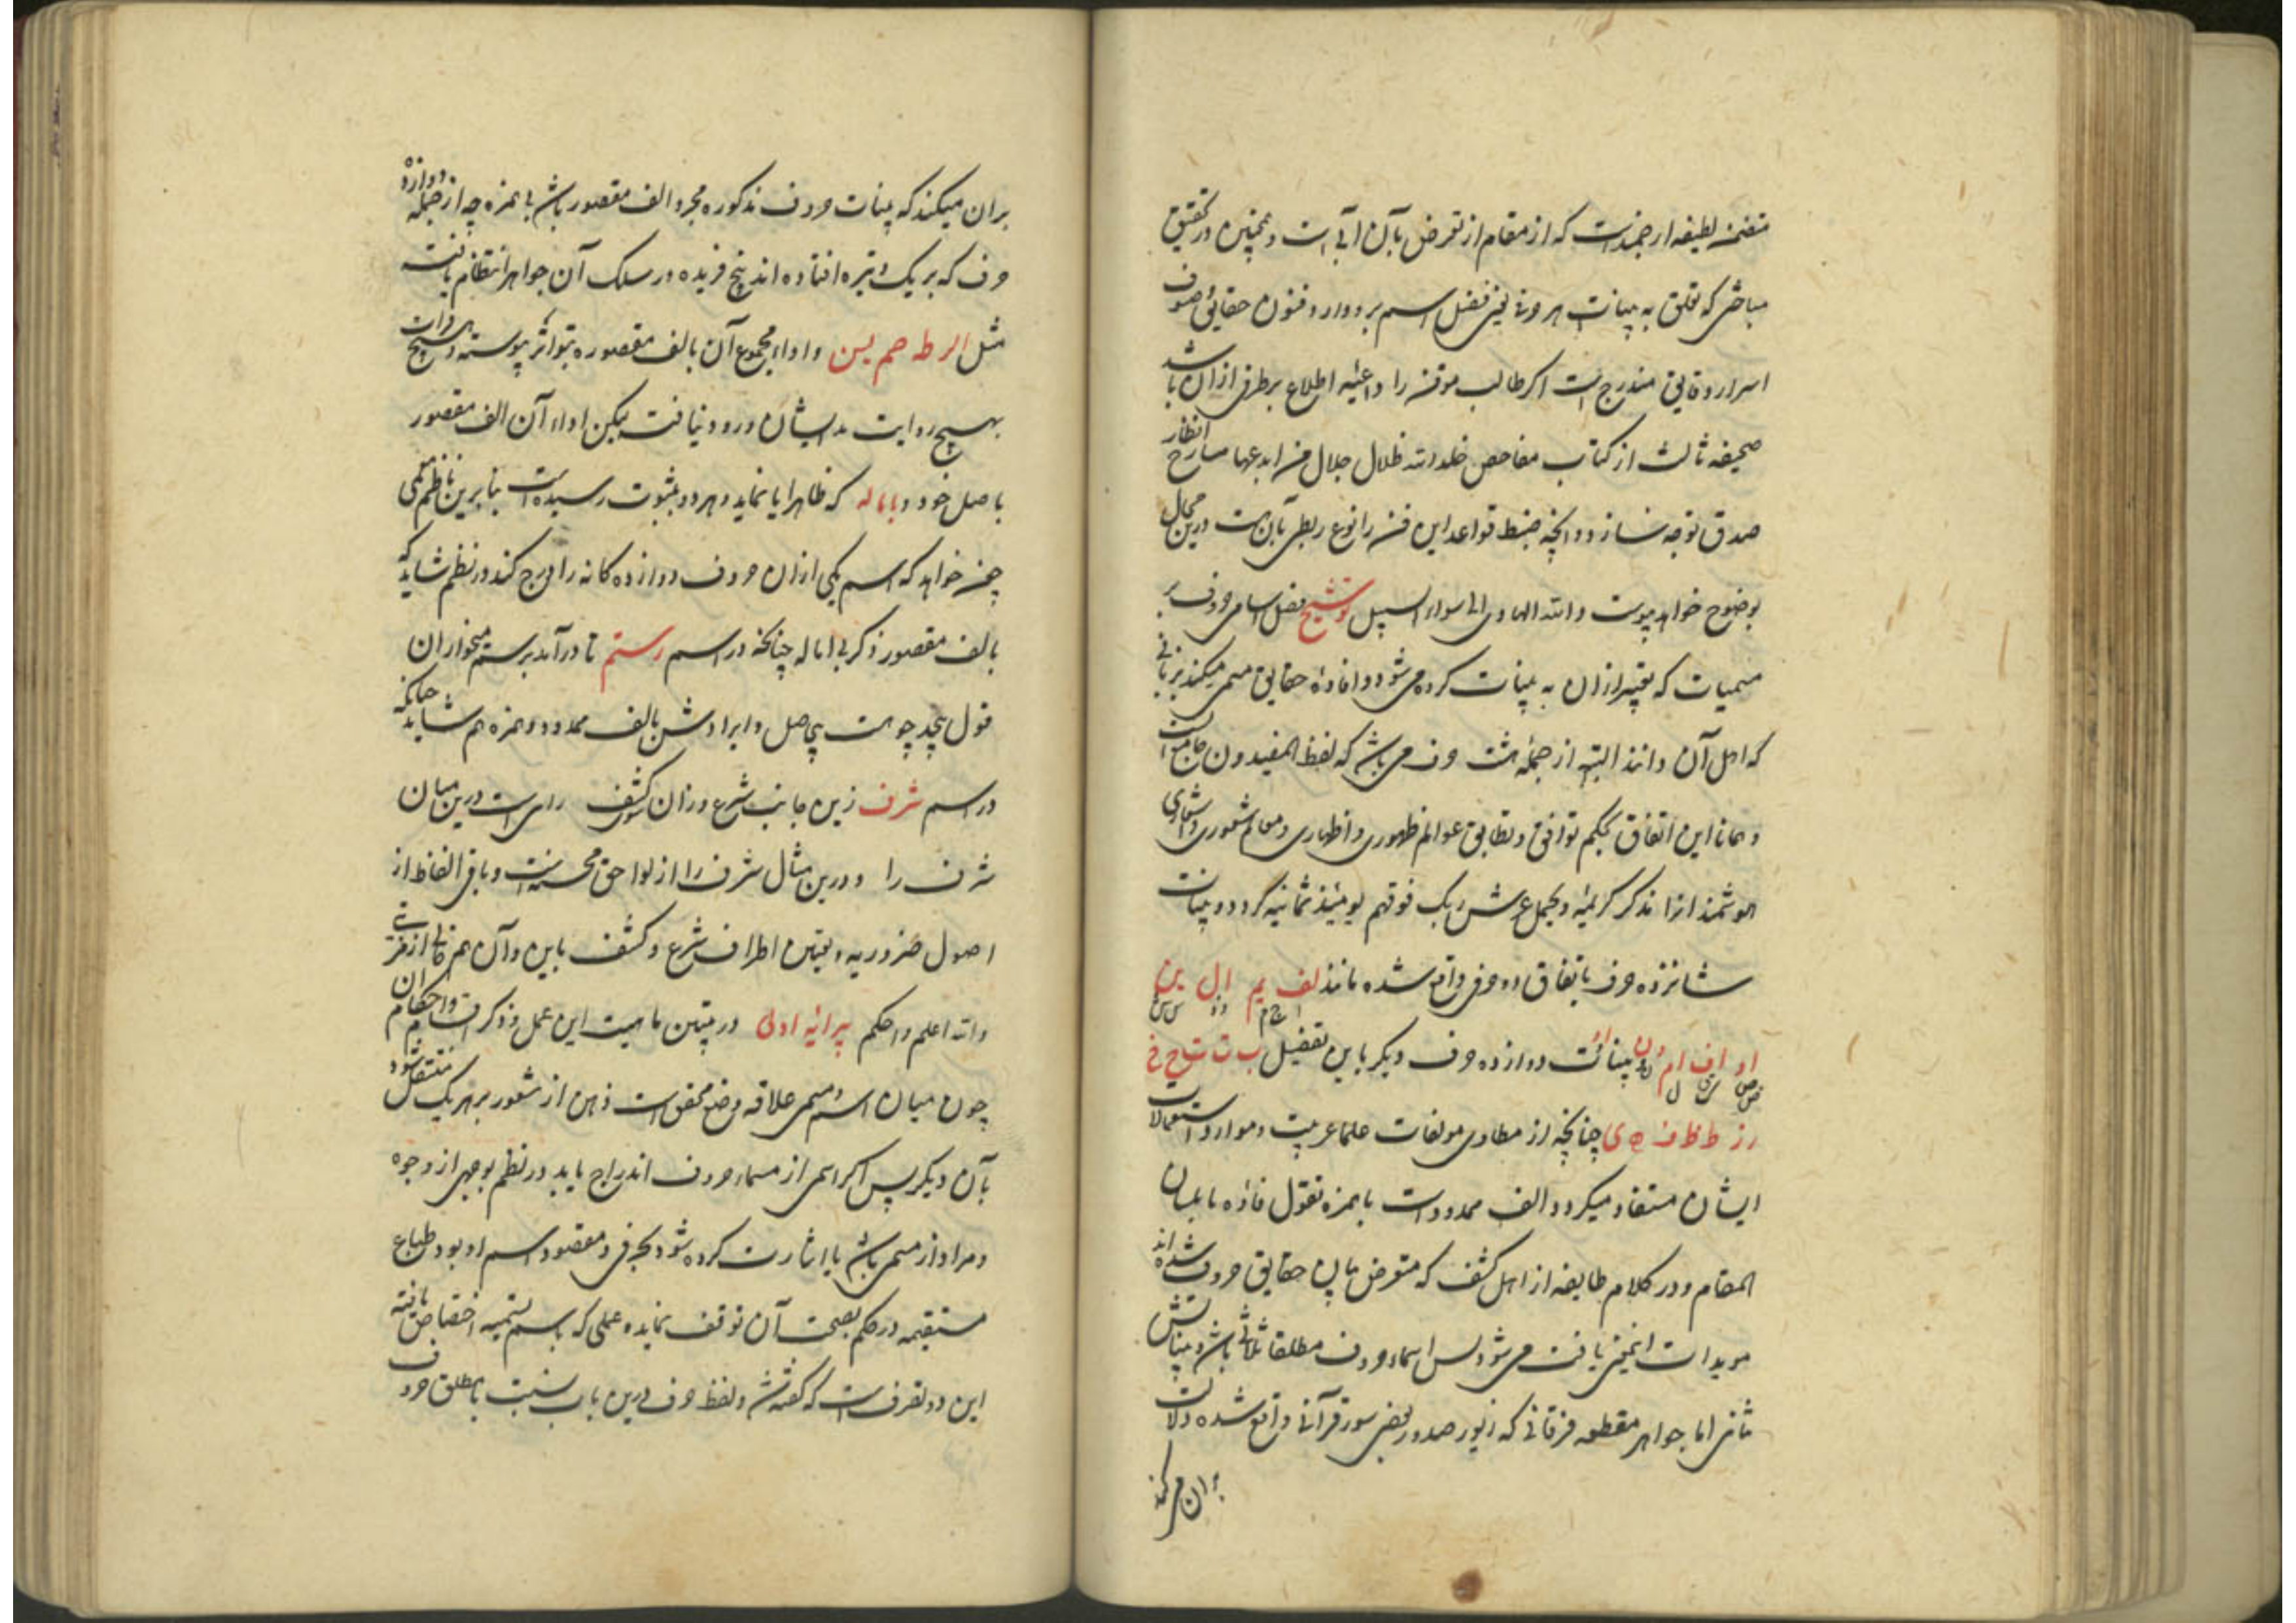 متضمن لطیفه ارجمندست که از مقام از تعرض بآن آبی است و همچنین در تحقیق
مباحثی که تعلق به بینات هر حرفی یعنی فضل اسم برو دارد فنون حقایق و صنوف
اسرار و دقایق مندرج است اکر طالب موقن را داعیه اطلاع بر طرفی از ان باشد
صحیفه ثالث از کتاب مفاحص خلد الله ظلال جلال من ابدعها مسارح انظار
صدق توجه سازد و انچه ضبط قواعد این فن را نوع ربطی بآن هست درین محال
بوضوح خواهد پیوست والله الهادی الی سواء السبیل توشیح فضل اسامی حروف بر
مسمیات که تعبیر ازان به بینات کرده می شود و افادهٔ حقایق مسمی میکند بزبانی
که اهل آن دانند البته از جملهٔ هشت حرف می باشد که لفظ المفیدون جامع آنست
و همانا این اتفاق بحکم توافق و تطابق عوالم ظهوری و اظهاری و معالم شعوری و اشعاری
هوشمند انرا مذکر کریمهٔ و یحمل عرش ربک فوقهم یومئذ ثمانیه گردد و بینات
شانزده حرف باتفاق دو حرفی واقع شده مانند لف یم ال ین
او اف ام ون و بینات دوازده حرف دیکر باین تفضیل ب ت ث ح خ
ر ز ط ظ ف ه ی چنانچه از مطاوی مولفات علماء عربیت و موارد استعمالات
ایشان مستفاد میکردد الف ممدودست با همزه نقول فاؤه
المقام و در کلام طایفه از اهل کشف که متعرض بیان حقایق حروف شده اند
مویدات اینمعنی یافت می شود پس اسماء حروف مطلقا ثلاثی باشد و بیناتش
ثنائی اما جواهر مقطعه فرقانی که زیور صدور بعضی سور قرآنی واقع شده دلالت
بران می کند
بران میکند که بینات حروف مذکوره مجرد الف مقصور باشد بی همزه چه از جمله دوازده
حرف که بر یک وتیره افتاده اند پنج فریده در سلک آن جواهر انتظام یافت
مثل الر طه حم یس و اداء مجموع آن بالف مقصوره بتواتر پیوسته و هیچ
بهیچ روایت مد ایشان ورود نیافت لیکن اداء آن الف مقصور
باصل خود و باماله که ظاهرا یا نماید و هر دو بثبوت رسیده است بنابرین ناظم معمی
چون خواهد که اسم یکی ازان حروف دوازده کانه را درج کند در نظم شاید که
بالف مقصور ذکر بی اماله چنانکه در اسم رستم تا درآمد برستم میخواران
قول بیحد چو هست بیحاصل و ایرادش بالف ممدود و همزه هم شاید چنانکه
در اسم شرف زین جانب شرع و زان سوی کشف راهی است درین میان
شرف را و درین مثال شرف را از لواحق محسنه است و باقی الفاظ از
اصول ضروریه و تعیین اطراف شرع و کشف باین و آن هم خالی از مزیتی نیست
والله اعلم و احکم پیرایهٔ اولی در تبیین ماهیت این عمل و ذکر اقسام و احکام آن
چون میان اسم و مسمی علاقه وضع محقق است ذهن از شعور بر هر یک منتقل شود
بآن دیکر پس اکر اسمی از مسماء حروف اندراج یابد در نظم بوجهی از وجوه
و مراد از مسمی باشد یا اشارت کرده شود بحرفی و مقصود اسم او بود طباع
مستقیمه در حکم بصحت آن توقف نماید و عملی که باسم تسمیه اختصاص یافته
این دو تصرف است که گفته شد و لفظ حرف درین باب نسبت با مطلق حروف